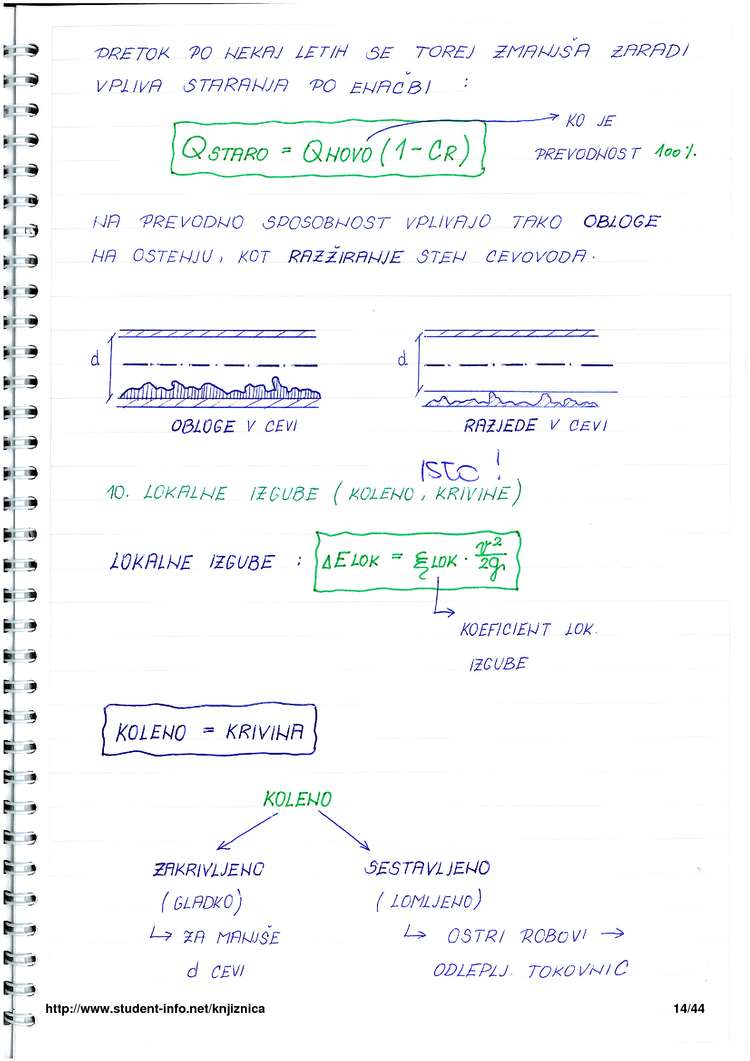 PRETOK PO NEKAJ LETIH SE TOREJ ZMANJŠA ZARADI
VPLIVA STARANJA PO ENAČBI :
QSTARO = QNOVO (1 - CR)
KO JE
PREVODNOST 100%.
NA PREVODNO SPOSOBNOST VPLIVAJO TAKO OBLOGE
NA OSTENJU, KOT RAZŽIRANJE STEN CEVOVODA.
d
d
OBLOGE V CEVI
RAZJEDE V CEVI
ISTO !
10. LOKALNE IZGUBE (KOLENO, KRIVINE)
LOKALNE IZGUBE : ΔELOK = ξLOK · v²/2g
KOEFICIENT LOK.
IZGUBE
KOLENO = KRIVINA
KOLENO
ZAKRIVLJENO
SESTAVLJENO
(GLADKO)
(LOMLJENO)
↳ ZA MANJŠE
↳ OSTRI ROBOVI →
d CEVI
ODLEPLJ. TOKOVNIC
http://www.student-info.net/knjiznica
14/44